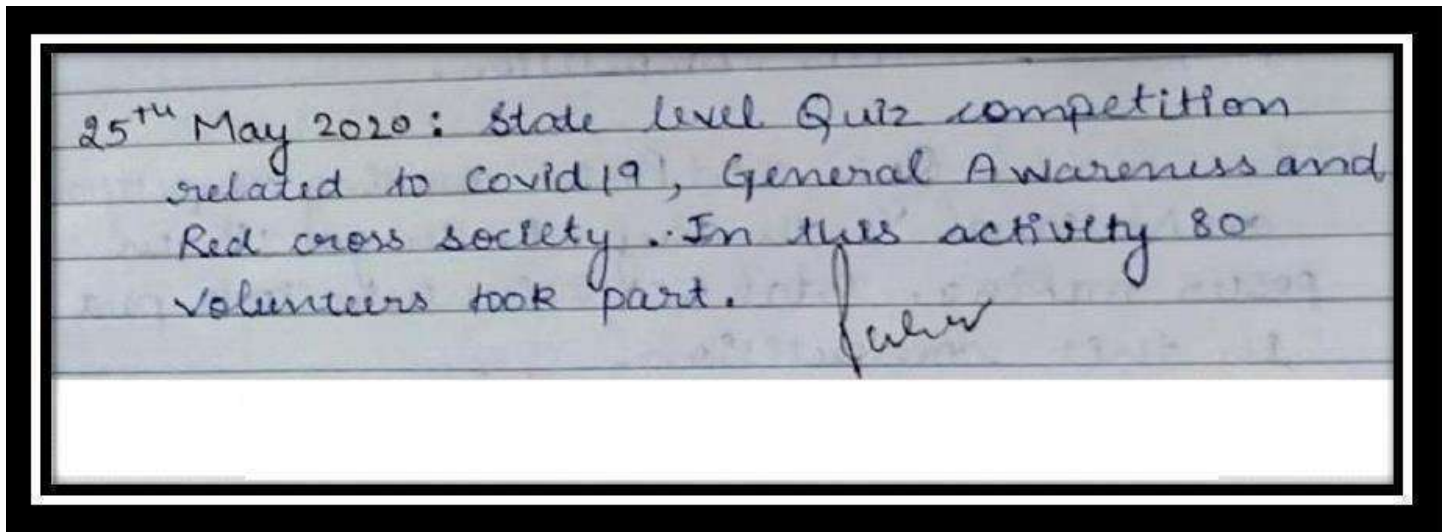 25th May 2020: State level Quiz competition
related to Covid 19, General Awareness and
Red cross society. In this activity 80
volunteers took part.